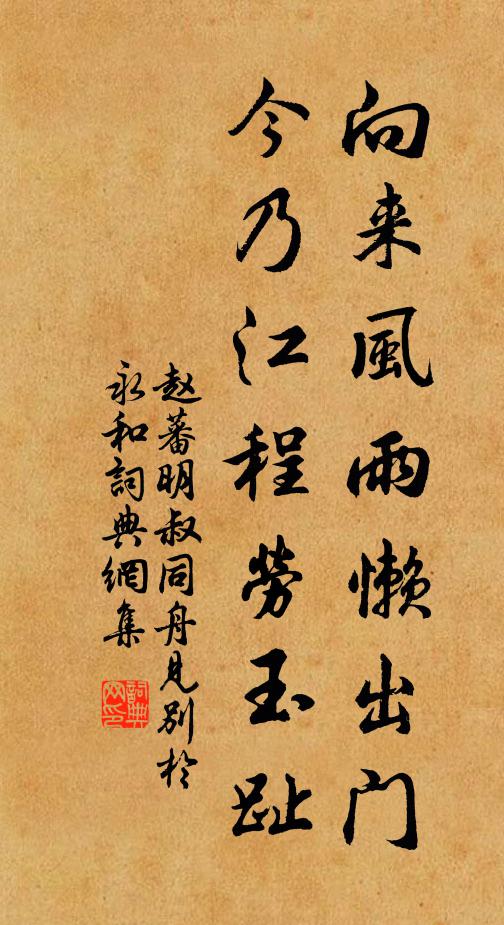 向来風雨懶出门
今乃江程勞玉趾
赵蕃明叔同舟見别於
永和詞典網集
詞典网印